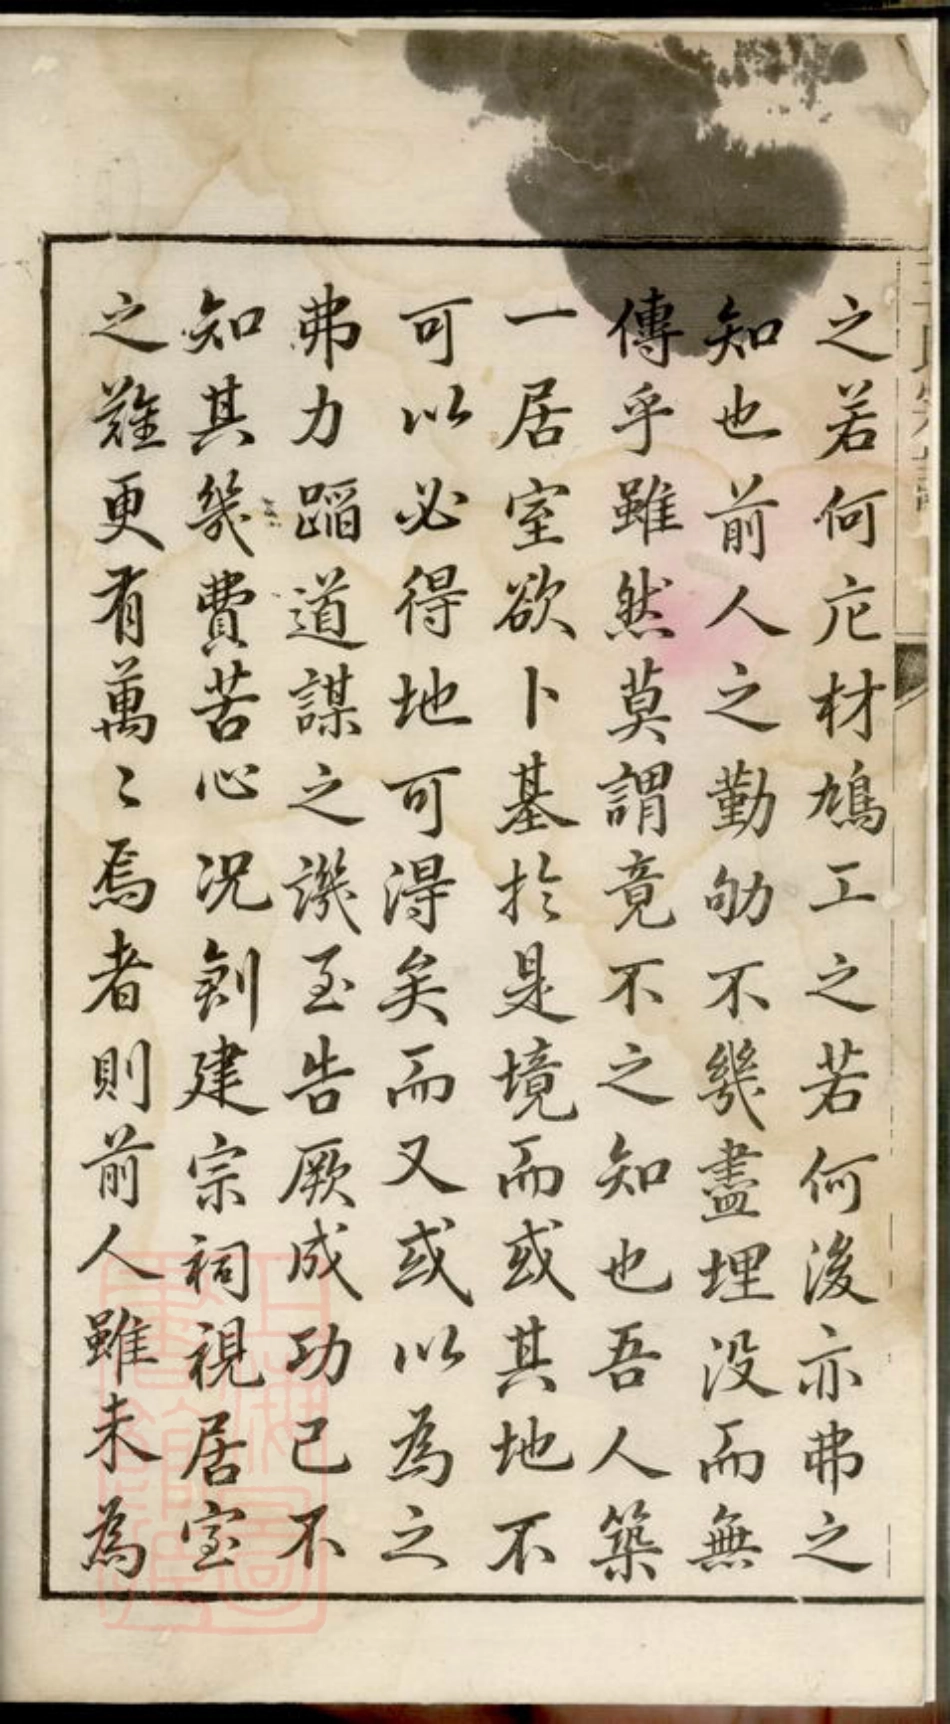 之若何庀材鳩工之若何後亦弗之
知也前人之勤劬不幾盡埋没而無
傳乎雖然莫謂竟不之知也吾人築
一居室欲卜基於是境而或其地不
可以必得地可得矣而又或以為之
弗力蹈道謀之譏至告厥成功已不
知其幾費苦心况創建宗祠視居室
之難更有萬〻焉者則前人雖未為